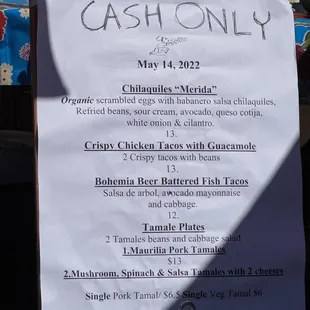 CASH ONLY
May 14, 2022
Chilaquiles "Merida"
Organic scrambled eggs with habanero salsa chilaquiles,
Refried beans, sour cream, avocado, queso cotija,
white onion & cilantro.
13.
Crispy Chicken Tacos with Guacamole
2 Crispy tacos with beans
13.
Bohemia Beer Battered Fish Tacos
Salsa de arbol, avocado mayonnaise
and cabbage.
12.
Tamale Plates
2 Tamales beans and cabbage salad
1.Maurilia Pork Tamales
$13
2.Mushroom, Spinach & Salsa Tamales with 2 cheeses
Single Pork Tamal/ $6.5 Single Veg Tamal $6